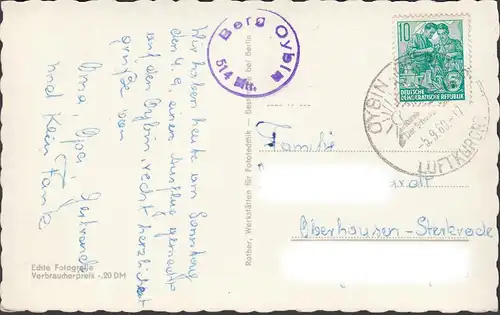 Wir haben heute am Sonntag
den 4.9. einen Ausflug gemacht
auf den Oybin, recht herzliche
Grüße von
Oma, Opa Gertraude
und Klein Frank
Echte Fotografie
Verbraucherpreis -.20 DM
Rother, Werkstätten für Fototechnik — bei Berlin
Berg Oybin
514 Mtr.
10
DEUTSCHE
DEMOKRATISCHE REPUBLIK
OYBIN
-5.9.60.-17
LUFTKURORT
Familie
Oberhausen-Sterkrade